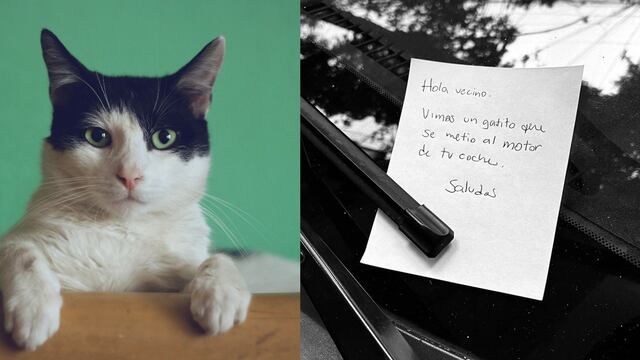 Hola vecino.
Vimos un gatito que
se metio al motor
de tu coche.
Saludos